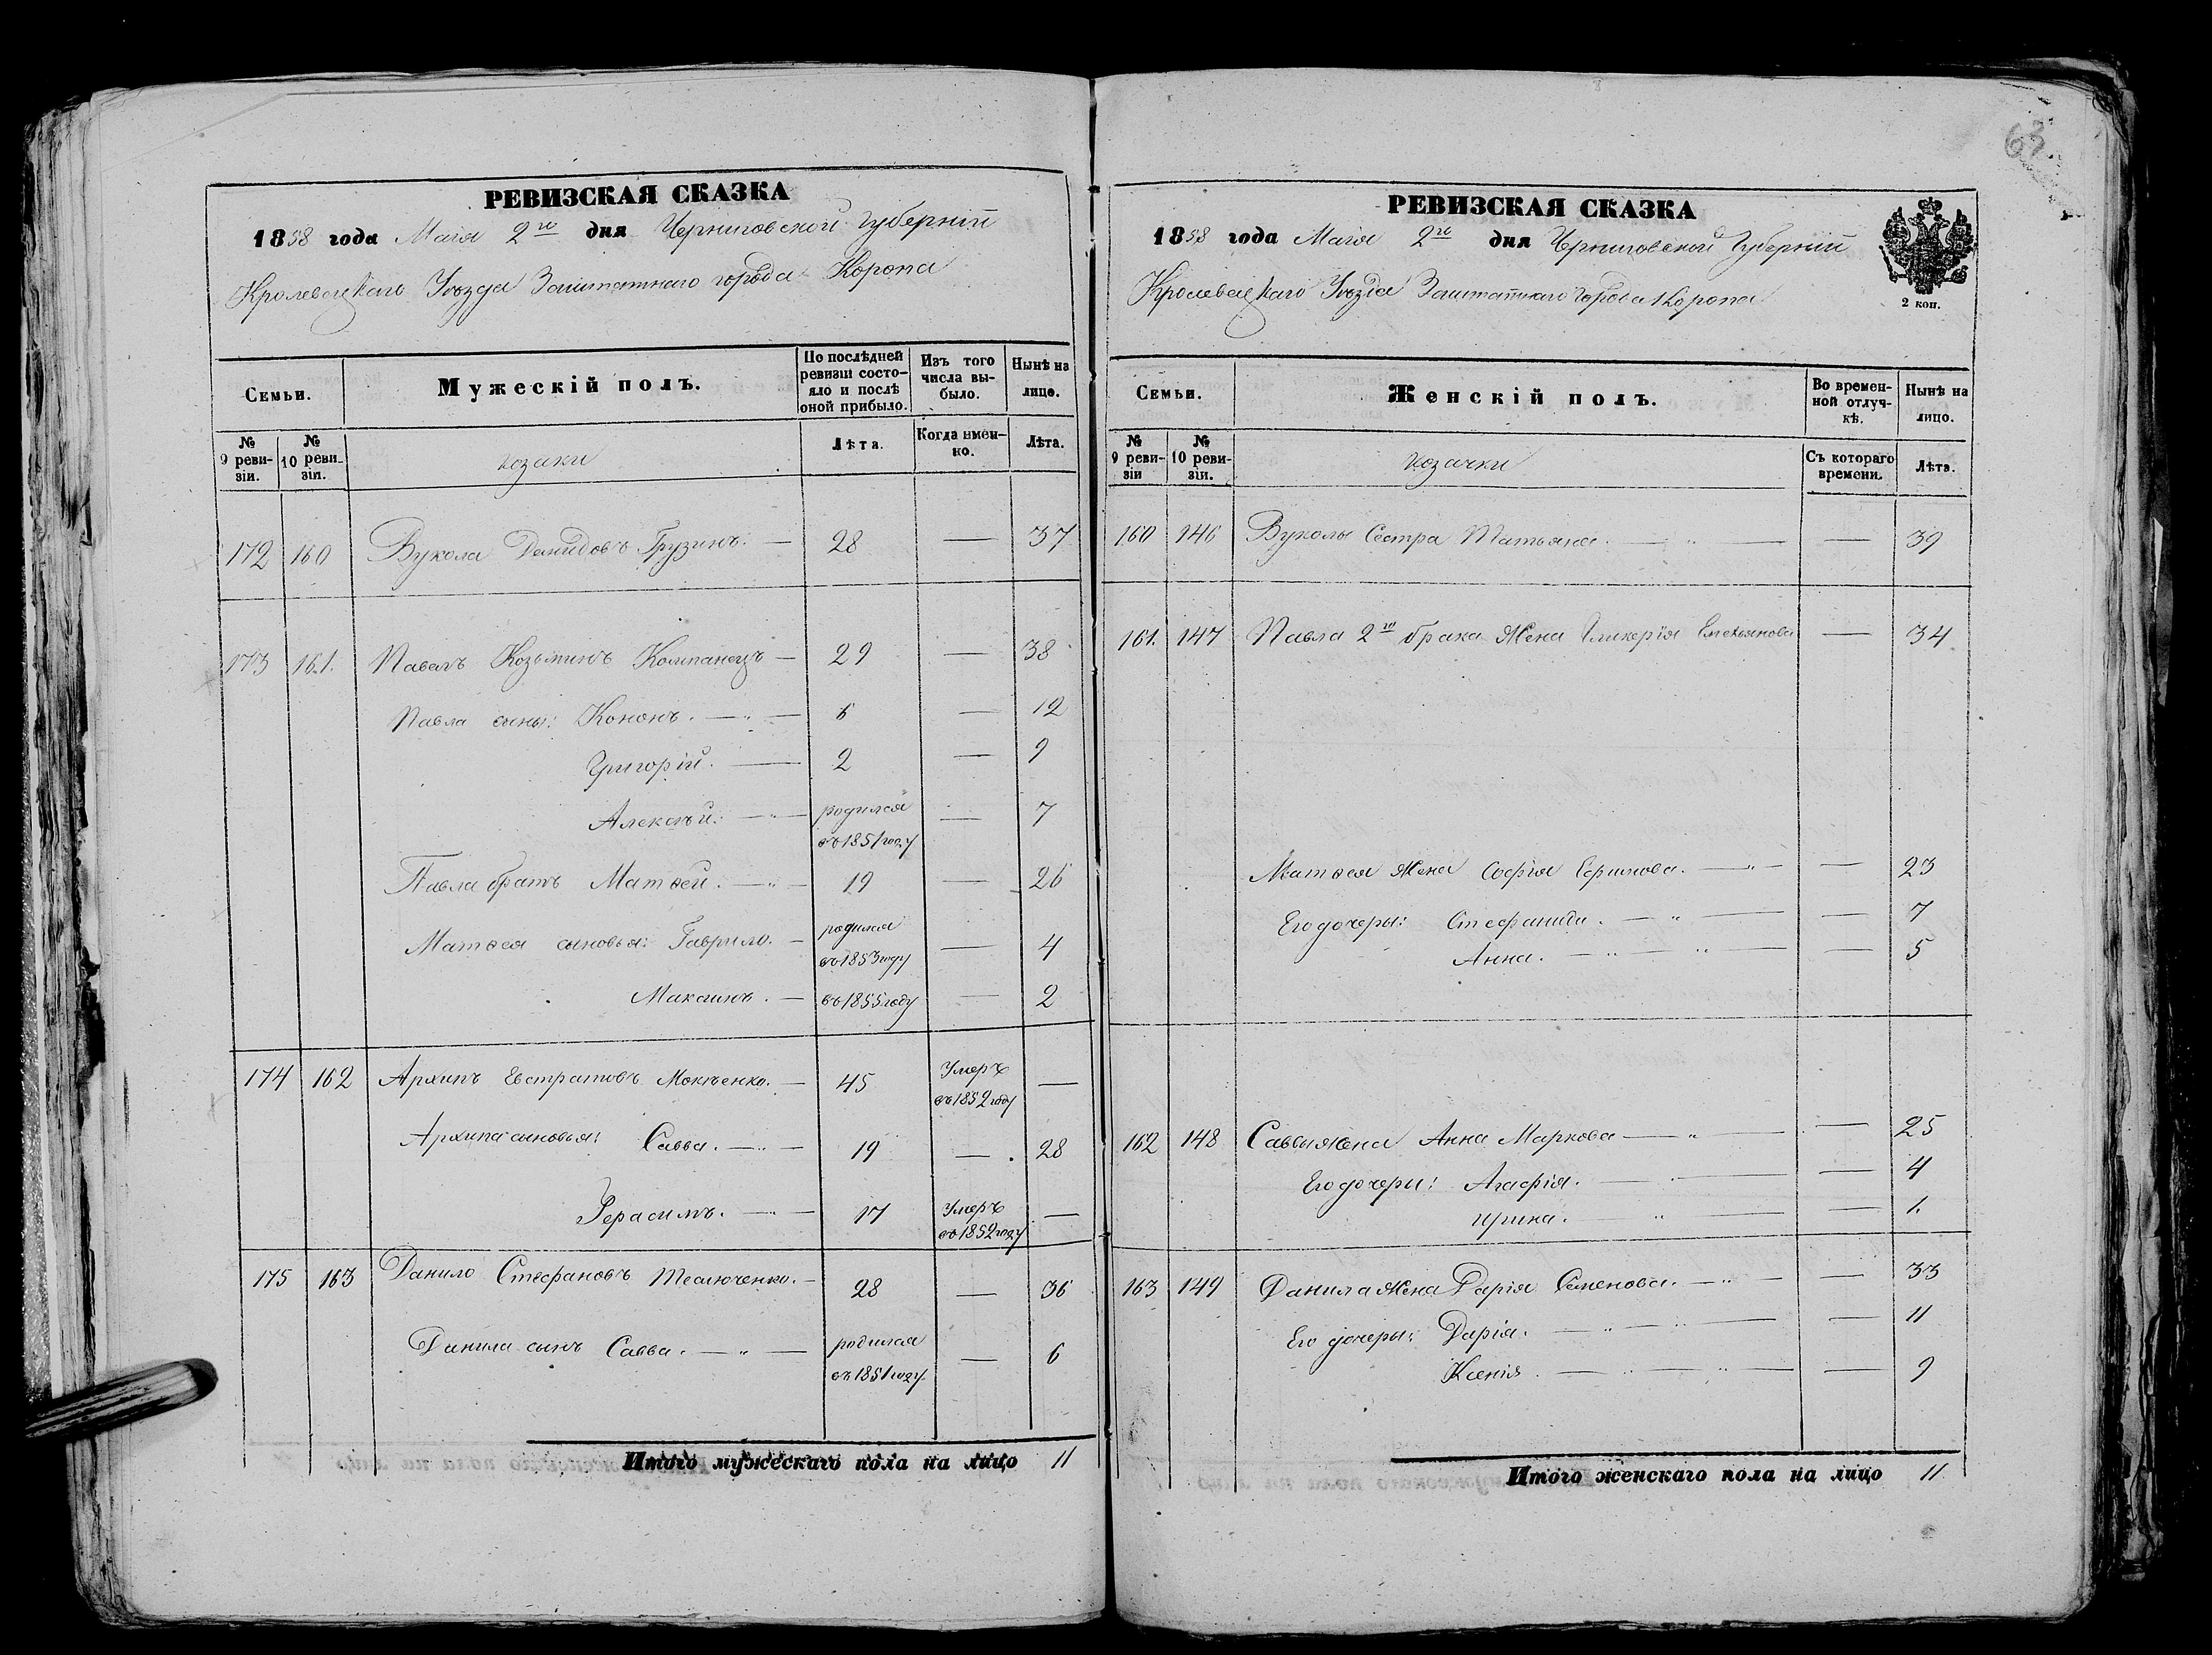 63
РЕВИЗСКАЯ СКАЗКА
1858 года Маія 2го дня Черниговской Губерніи
Кролевецкаго Уѣзда Заштатнаго города Коропа
Семьи.
Мужескій полъ.
По послѣдней ревизіи состо-
яло и послѣ
оной прибыло.
Изъ того
числа вы-
было.
Нынѣ на
лицо.
№ 9 реви-
зіи.
№ 10 реви-
зіи.
козаки
Лѣта.
Когда имен-
но.
Лѣта.
172 160 Вукола Демидовъ Грузинъ. — 28 — 37
173 161. Павелъ Козьминъ Компанецъ — 29 — 38
Павла сыны: Кононъ. — 6 — 12
Григорій. — 2 — 9
Алексѣй: — родился — 7
въ 1851 году
Павла братъ Матвей. — 19 — 26
Матвея сыновья: Гаврило. — родился — 4
въ 1853 году
Максимъ. — въ 1855 году — 2
174 162 Архипъ Евстратовъ Мокѣенко. — 45 Умеръ —
въ 1852 году
Архипа сыновья: Савва. — 19 — 28
Герасимъ. — 17 Умеръ —
въ 1852 году
175 163 Данило Стефановъ Теслюченко. — 28 — 36
Данила сынъ Савва. — родился — 6
въ 1851 году
Итого мужескаго пола на лицо 11
РЕВИЗСКАЯ СКАЗКА
1858 года Маія 2го дня Черниговской Губерніи
Кролевецкаго Уѣзда Заштатнаго Города Коропа
2 коп.
Семьи.
Женскій полъ.
Во времен-
ной отлуч-
кѣ.
Нынѣ на
лицо.
№ 9 реви-
зіи
№ 10 реви-
зіи.
козачки
Съ котораго
времени.
Лѣта.
160 146 Вуколы Сестра Татьяна. — — 39
161. 147 Павла 2го брака Жена Гликерія Емельянова — 34
Матвея Жена Софія Ефимова. — — 23
Его дочеры: Стефанида. — — 7
Анна. — — 5
162 148 Саввы жена Анна Маркова — — 25
Его дочеры: Агафія. — — 4
Ирина. — — 1.
163 149 Данила Жена Дарія Семенова. — — 33
Его дочеры: Дарія. — — 11
Ксенія. — — 9
Итого женскаго пола на лицо 11